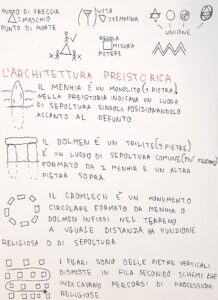 PUNTO DI FRECCIA
= MASCHIO
PUNTO DI MORTE
VITA
= FEMMINA
REGOLA
MISURA
POTERE
UNIONE
L'ARCHITETTURA PREISTORICA
IL MENHIR E' UN MONOLITO (1 PIETRA)
NELLA PREISTORIA INDICAVA UN LUOGO
DI SEPOLTURA SINGOLA POSIZIONANDOLO
ACCANTO AL DEFUNTO.
IL DOLMEN E' UN TRILITE (3 PIETRE)
E' UN LUOGO DI SEPOLTURA COMUNE (PIU' PERSONE)
FORMATO DA 2 MENHIR E UN ALTRA
PIETRA SOPRA.
IL CROMLECH E' UN MONUMENTO
CIRCOLARE FORMATO DA MENHIR O
DOLMEN INFISSI NEL TERRENO
A UGUALE DISTANZA HA FUNZIONE
RELIGIOSA O DI SEPOLTURA.
I FILARI SONO DELLE PIETRE VERTICALI
DISPOSTE IN FILA SECONDO SCHEMI CHE
INDICAVANO PERCORSI DI PROCESSIONI
RELIGIOSE.